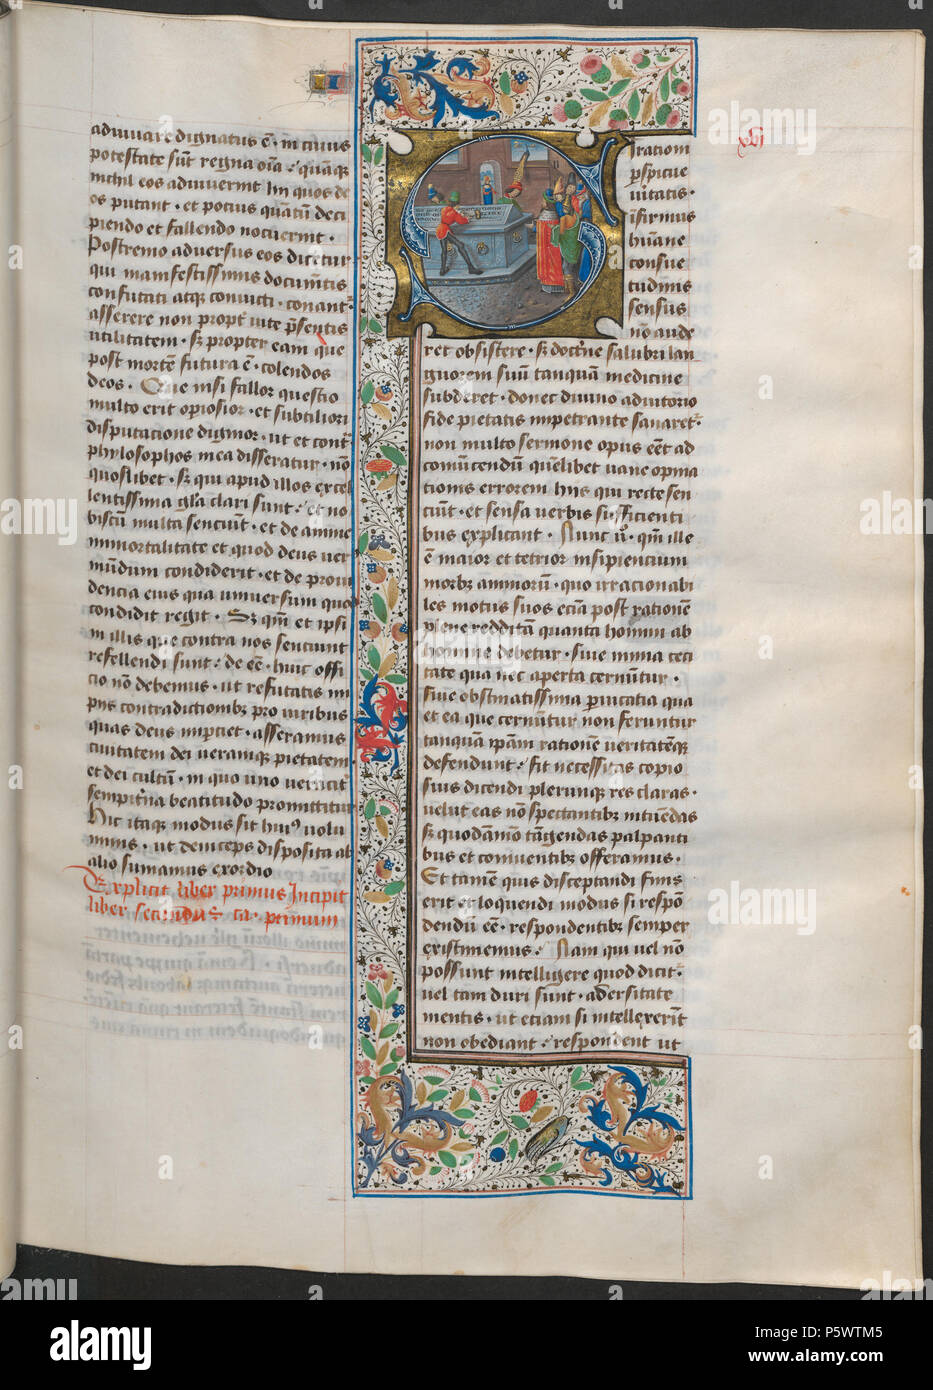 adiuuare dignatus ē · in cuius
potestate sūt regna oīa · quāqz
nichil eos adiuuerint hii quos de
os putant · et potius quātū deci
piendo et fallendo nocuerint ·
Postremo aduersus eos dicetur
qui manifestissimis documētis
confutati atqz conuicti · conant᷑
asserere non propt̄ uite p̄sentis
utilitatem · sz propter eam que
post mortem futura ē · colendos
deos · Que nisi fallor questio
multo erit opiosior · et subtiliori
disputacione dignior · ut et cont̄
phylosophos in ea disseratur · nō
quoslibet · sz qui apud illos excel
lentissima gl̄a clari sunt · et no
biscū multa senciūt · et de anime
inmortalitate et quod deus ver
mūdum condiderit · et de proui
dencia eius qua uniuersum quod
condidit regit · Sz qm̄ et ipsi
in illis que contra nos senciunt
refellendi sunt · de eē · huic offi
cio nō debemus · ut refutatis im
piis contradictionibz pro uiribus
quas deus impciet · asseramus
ciuitatem dei ueramqz pietatem
et dei cultū · in quo uno ueracit᷑
sempit̄na beatitudo promittitur
Hic itaqz modus sit hui⁹ uolu
minis · ut deinceps disposita ab
alio sumamus exordio
Explicit liber primus Incipit
liber secundus ca · primum
S
i rationi
p̄spicue
uitatis ·
īfirmus
hūane
consue
tudinis
sensus
nō aude
ret obsistere · sz doct̄ne salubri lan
guorem suū tanquā medicine
subderet · donec diuino adiutorio
fide pietatis impetrante sanaret᷑ ·
non multo sermone opus eēt ad
conuīcendū quēlibet uane opina
tionis errorem hiis qui recte sen
ciūt · et sensa uerbis sufficienti
bus explicant · Nunc u° · qm̄ ille
ē maior et tetrior insipiencium
morbz animorū · quo irracionabi
les motus suos eciā post rationē
plene redditā quanta homini ab
homine debetur · siue nimia ceci
tate qua nec aperta cernūtur ·
siue obstinatissima p̄uicatia qua
et ea que cernūtur non feruntur
tanquā ip̄am rationē ueritatēqz
defendunt · fit necessitas copio
sius dicendi plerunqz res claras ·
uelut eas nō spectantibz intuēdas
sz quodāmō tāgendas palpanti
bus et coniuentibz offeramus ·
Et tamē quis disceptandi finis
erit et loquendi modus si respō
dendū eē · respondentibz semper
existimemus · Nam qui uel nō
possunt intelligere quod dicit᷑
uel tam duri sunt · adūersitate
mentis · ut etiam si intellexerīt
non obediant · respondent ut
alamy
P5WTM5
www.alamy.com